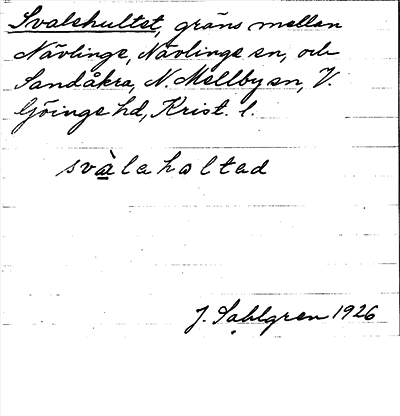 Svalehultet, gräns mellan
Nävlinge, Nävlinge sn, och
Sandåkra, N. Mellby sn, V.
Göinge hd, Krist. l.
svàlahaltad
J. Sahlgren 1926